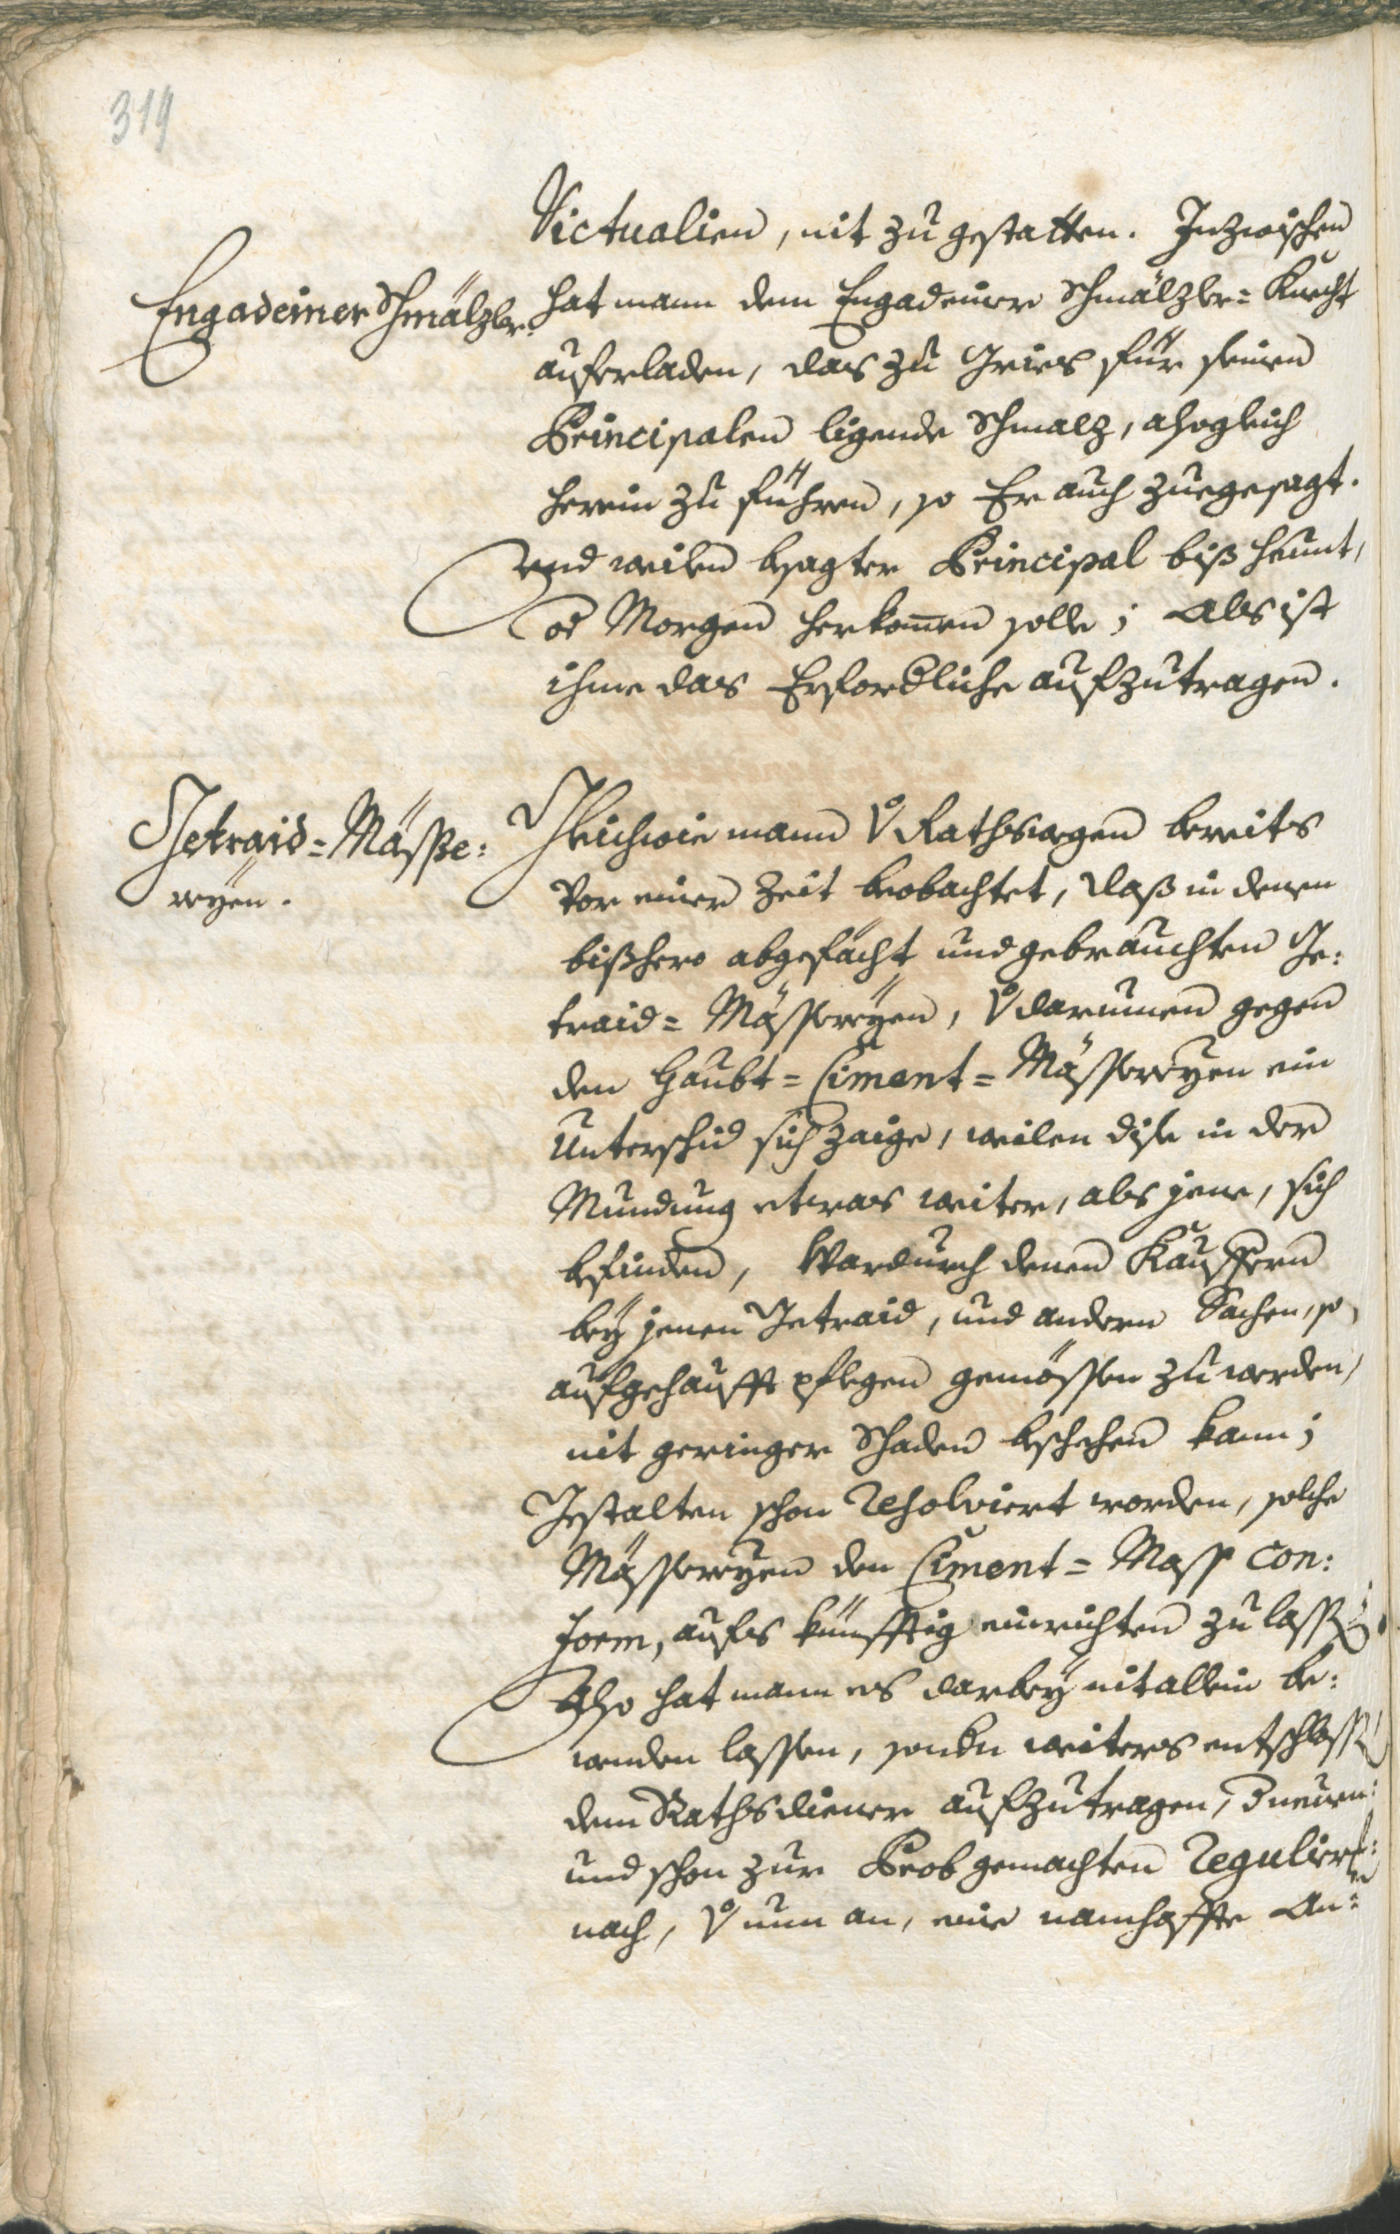 319
Victualien, nit zu gestatten. Inzwischen
Engadeiner Schmälzler.
hat mann dem Engadeiner Schmälzler= Knecht
auferladen, das zu Gries für seinen
Principalen ligende Schmalz, alsogleich
herein zu führen, so Er auch zuegesagt.
Und weilen besagter Principal biß heunt,
od Morgen herkomen solle; Als ist
ihme das Erforderliche aufzutragen.
Getraid= Mässe:
reyen.
Gleichwie mann V Rathswegen bereits
Vor einer Zeit beobachtet, daß in denen
bißhero abgefächt und gebrauchten Ge:
traid= Mässereyen, V darumen gegen
den Haubt= Ciment= Mässereyen ein
Unterschid sich zaige, weilen dise in der
Mundung etwas weiter, als jene, sich
befinden, Wardurch denen Kauffern
bey jenen Getraid, und andern Sachen, so
aufgehaufft pflegen gemössen zu werden,
nit geringer Schaden beschehen kann;
Gestalten schon resolviert worden, solche
Mässereyen den Ciment= Mass con:
form, aufs künfftig einrichten zu lassen.
Also hat mann es darbey nit allein be:
wenden lassen, sondern weiters entschlossen
dem Rathsdiener aufzutragen, 3 neuen:
und schon zur Prob gemachten Regulier:
nach, V nun an, eine namhaffte An: